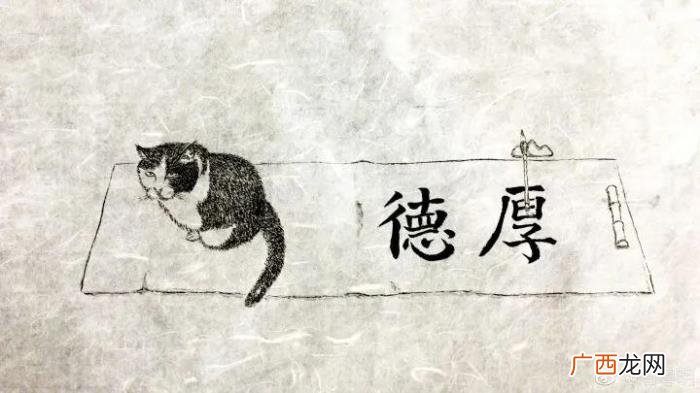 德厚
广西龙网